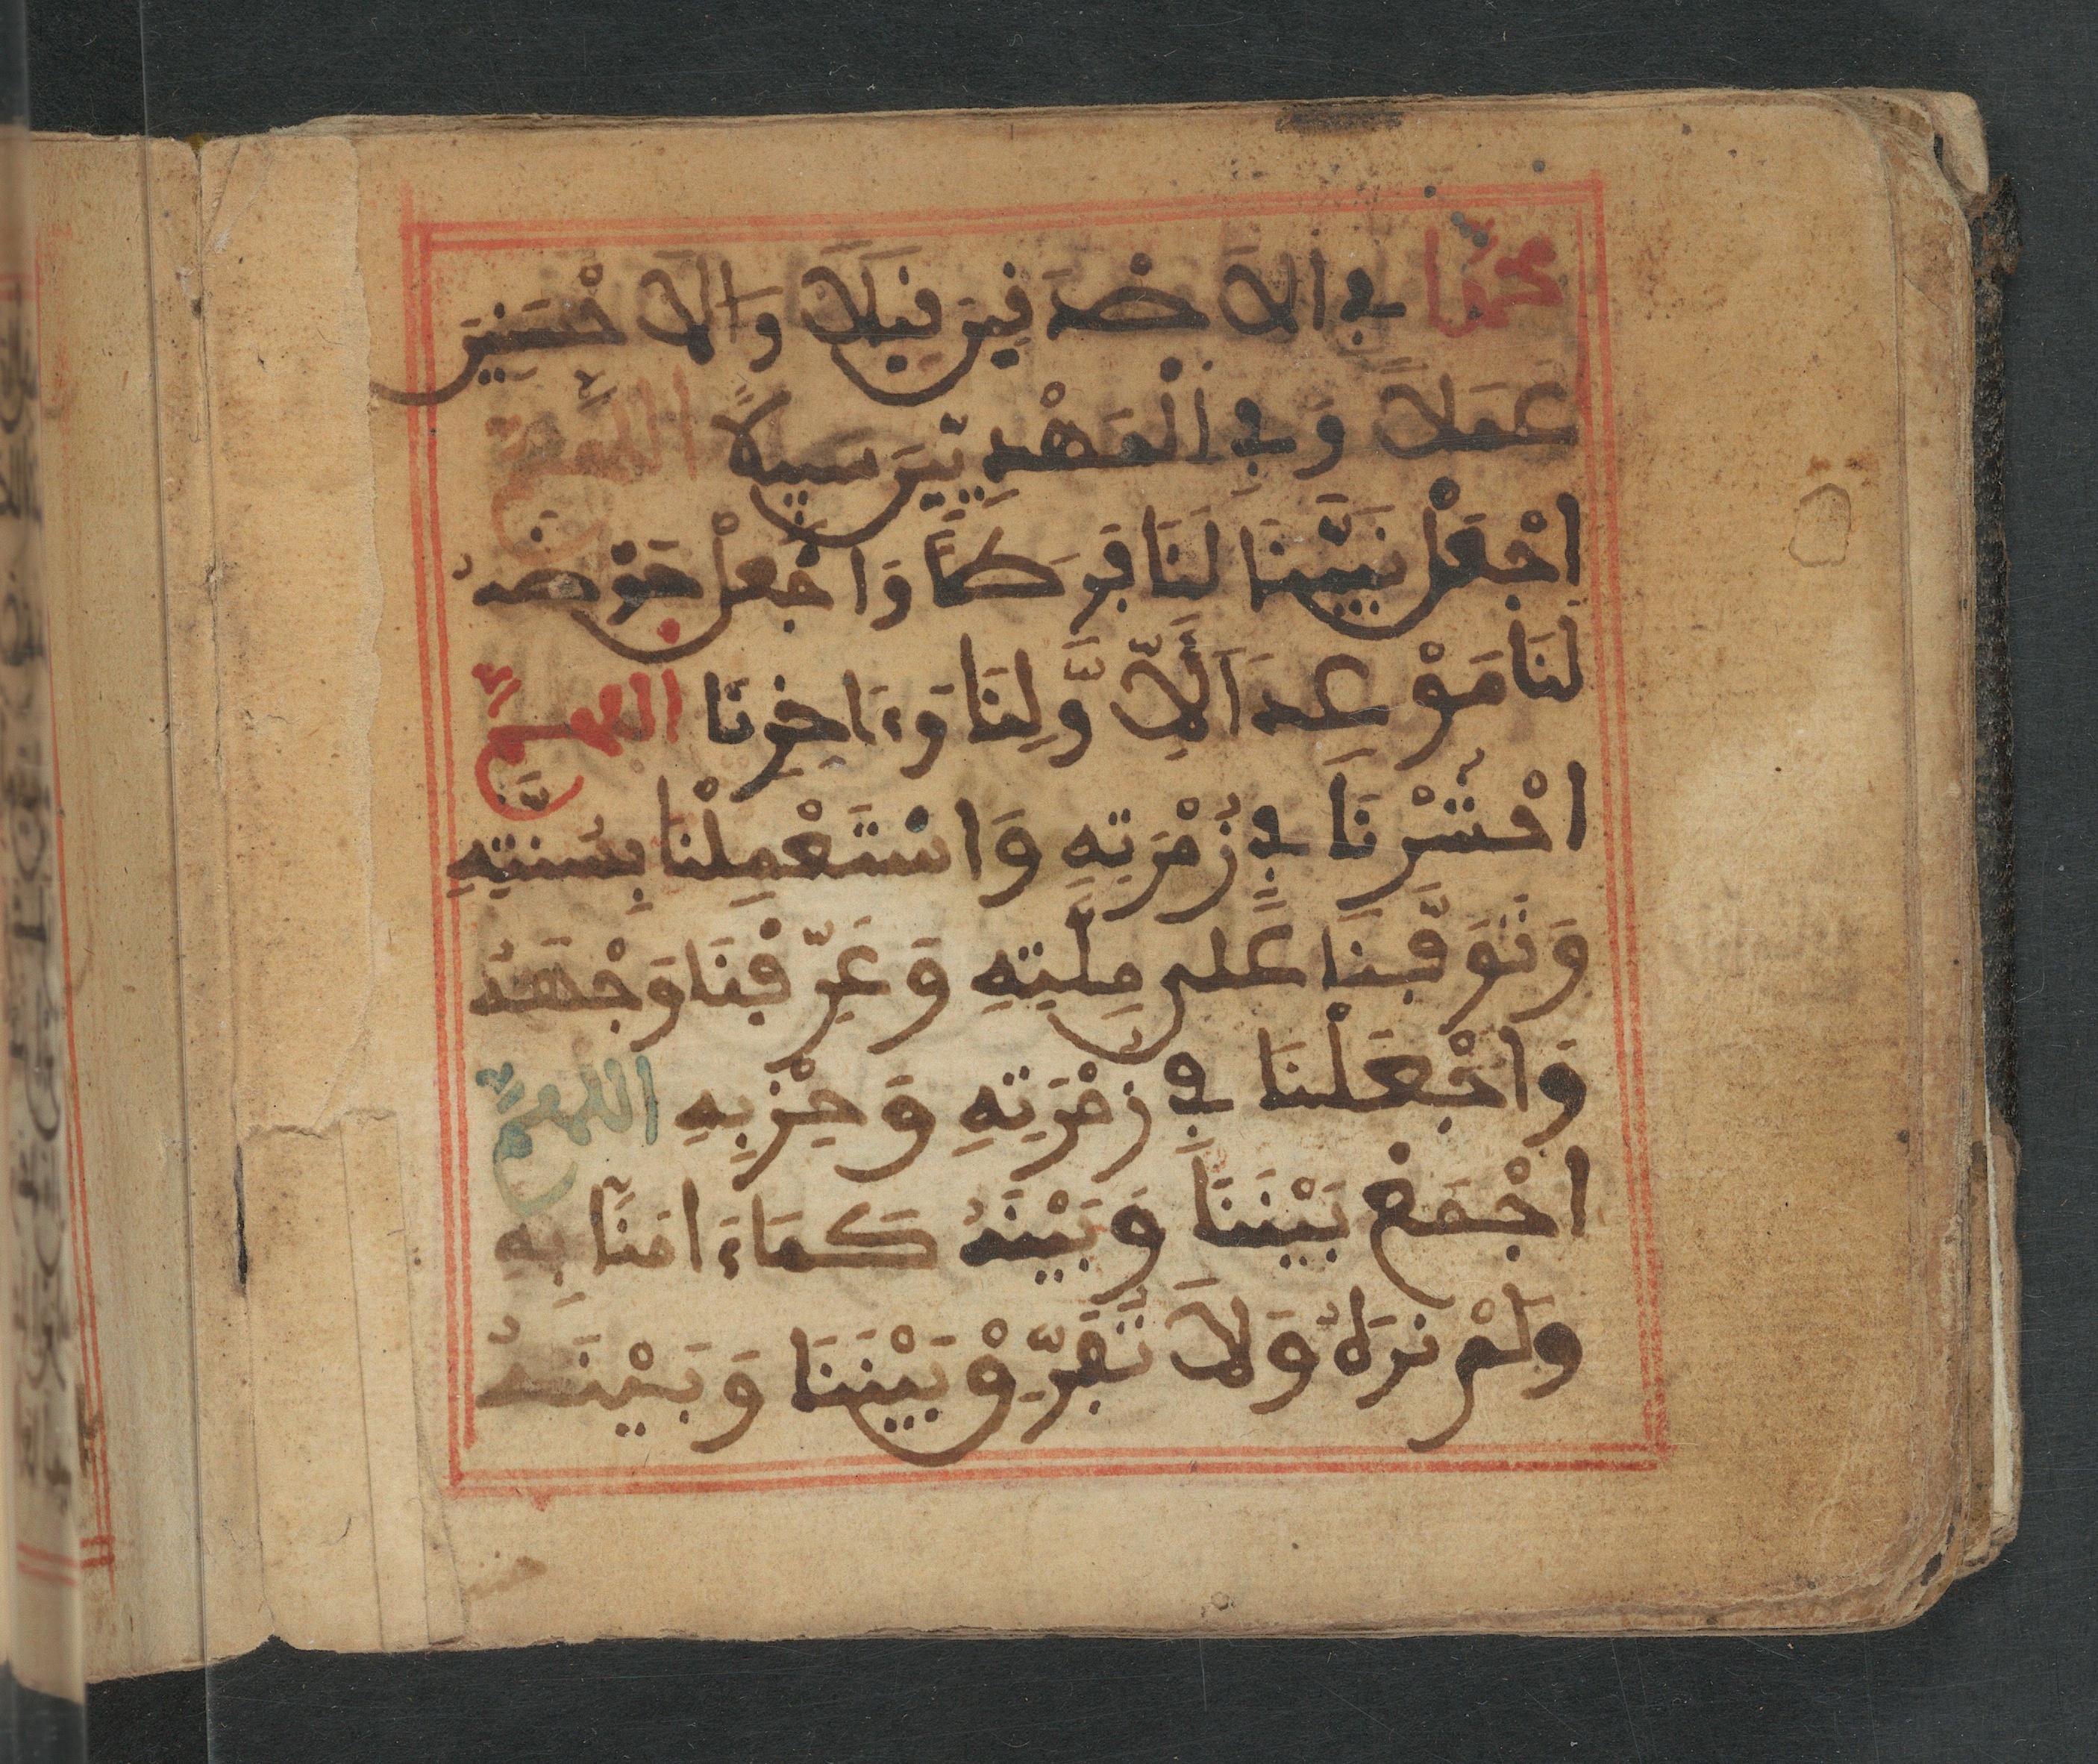 محمدا في الاَصْدَفِينَ فِيلاَ وَالاَحْسَنِينَ
عَمَلاً وَفِي الْمَهْدِيِّينَ سَبِيلاً اللهمَّ
اجْعَلْ نَبِيَّنَا لَنَا فَرَطًا وَاجْعَلْ حَوْضَهُ
لَنَا مَوْعِدًا لِأَوَّلِنَا وَءَاخِرِنَا اللهمَّ
احْشُرْنَا فِي زُمْرَتِهِ وَاسْتَعْمِلْنَا بِسُنَّتِهِ
وَتَوَفَّنَا عَلَى مِلَّتِهِ وَعَرِّفْنَا وَجْهَهُ
وَاجْعَلْنَا فِي زُمْرَتِهِ وَحِزْبِهِ اللهمَّ
اجْمَعْ بَيْنَنَا وَبَيْنَهُ كَمَا ءَامَنَّا بِهِ
وَلَمْ نَرَهُ وَلاَ تُفَرِّقْ بَيْنَنَا وَبَيْنَهُ